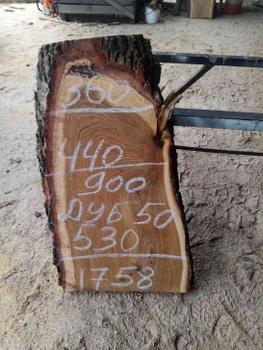 360
440
900
ДУБ 50
530
1758